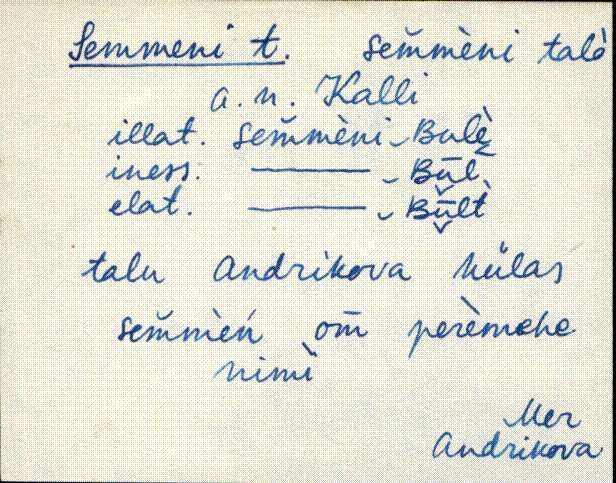 Semmeni t. sem̆mèni talò
a. n. Kalli
illat. sem̆mèni ‿ Bulè
iness. ——— ‿ Būl
elat. ——— ‿ Būlt
talu Andrikova külas
sem̆mèń om̄ perèmehe
nimì
Mer
Andrikova